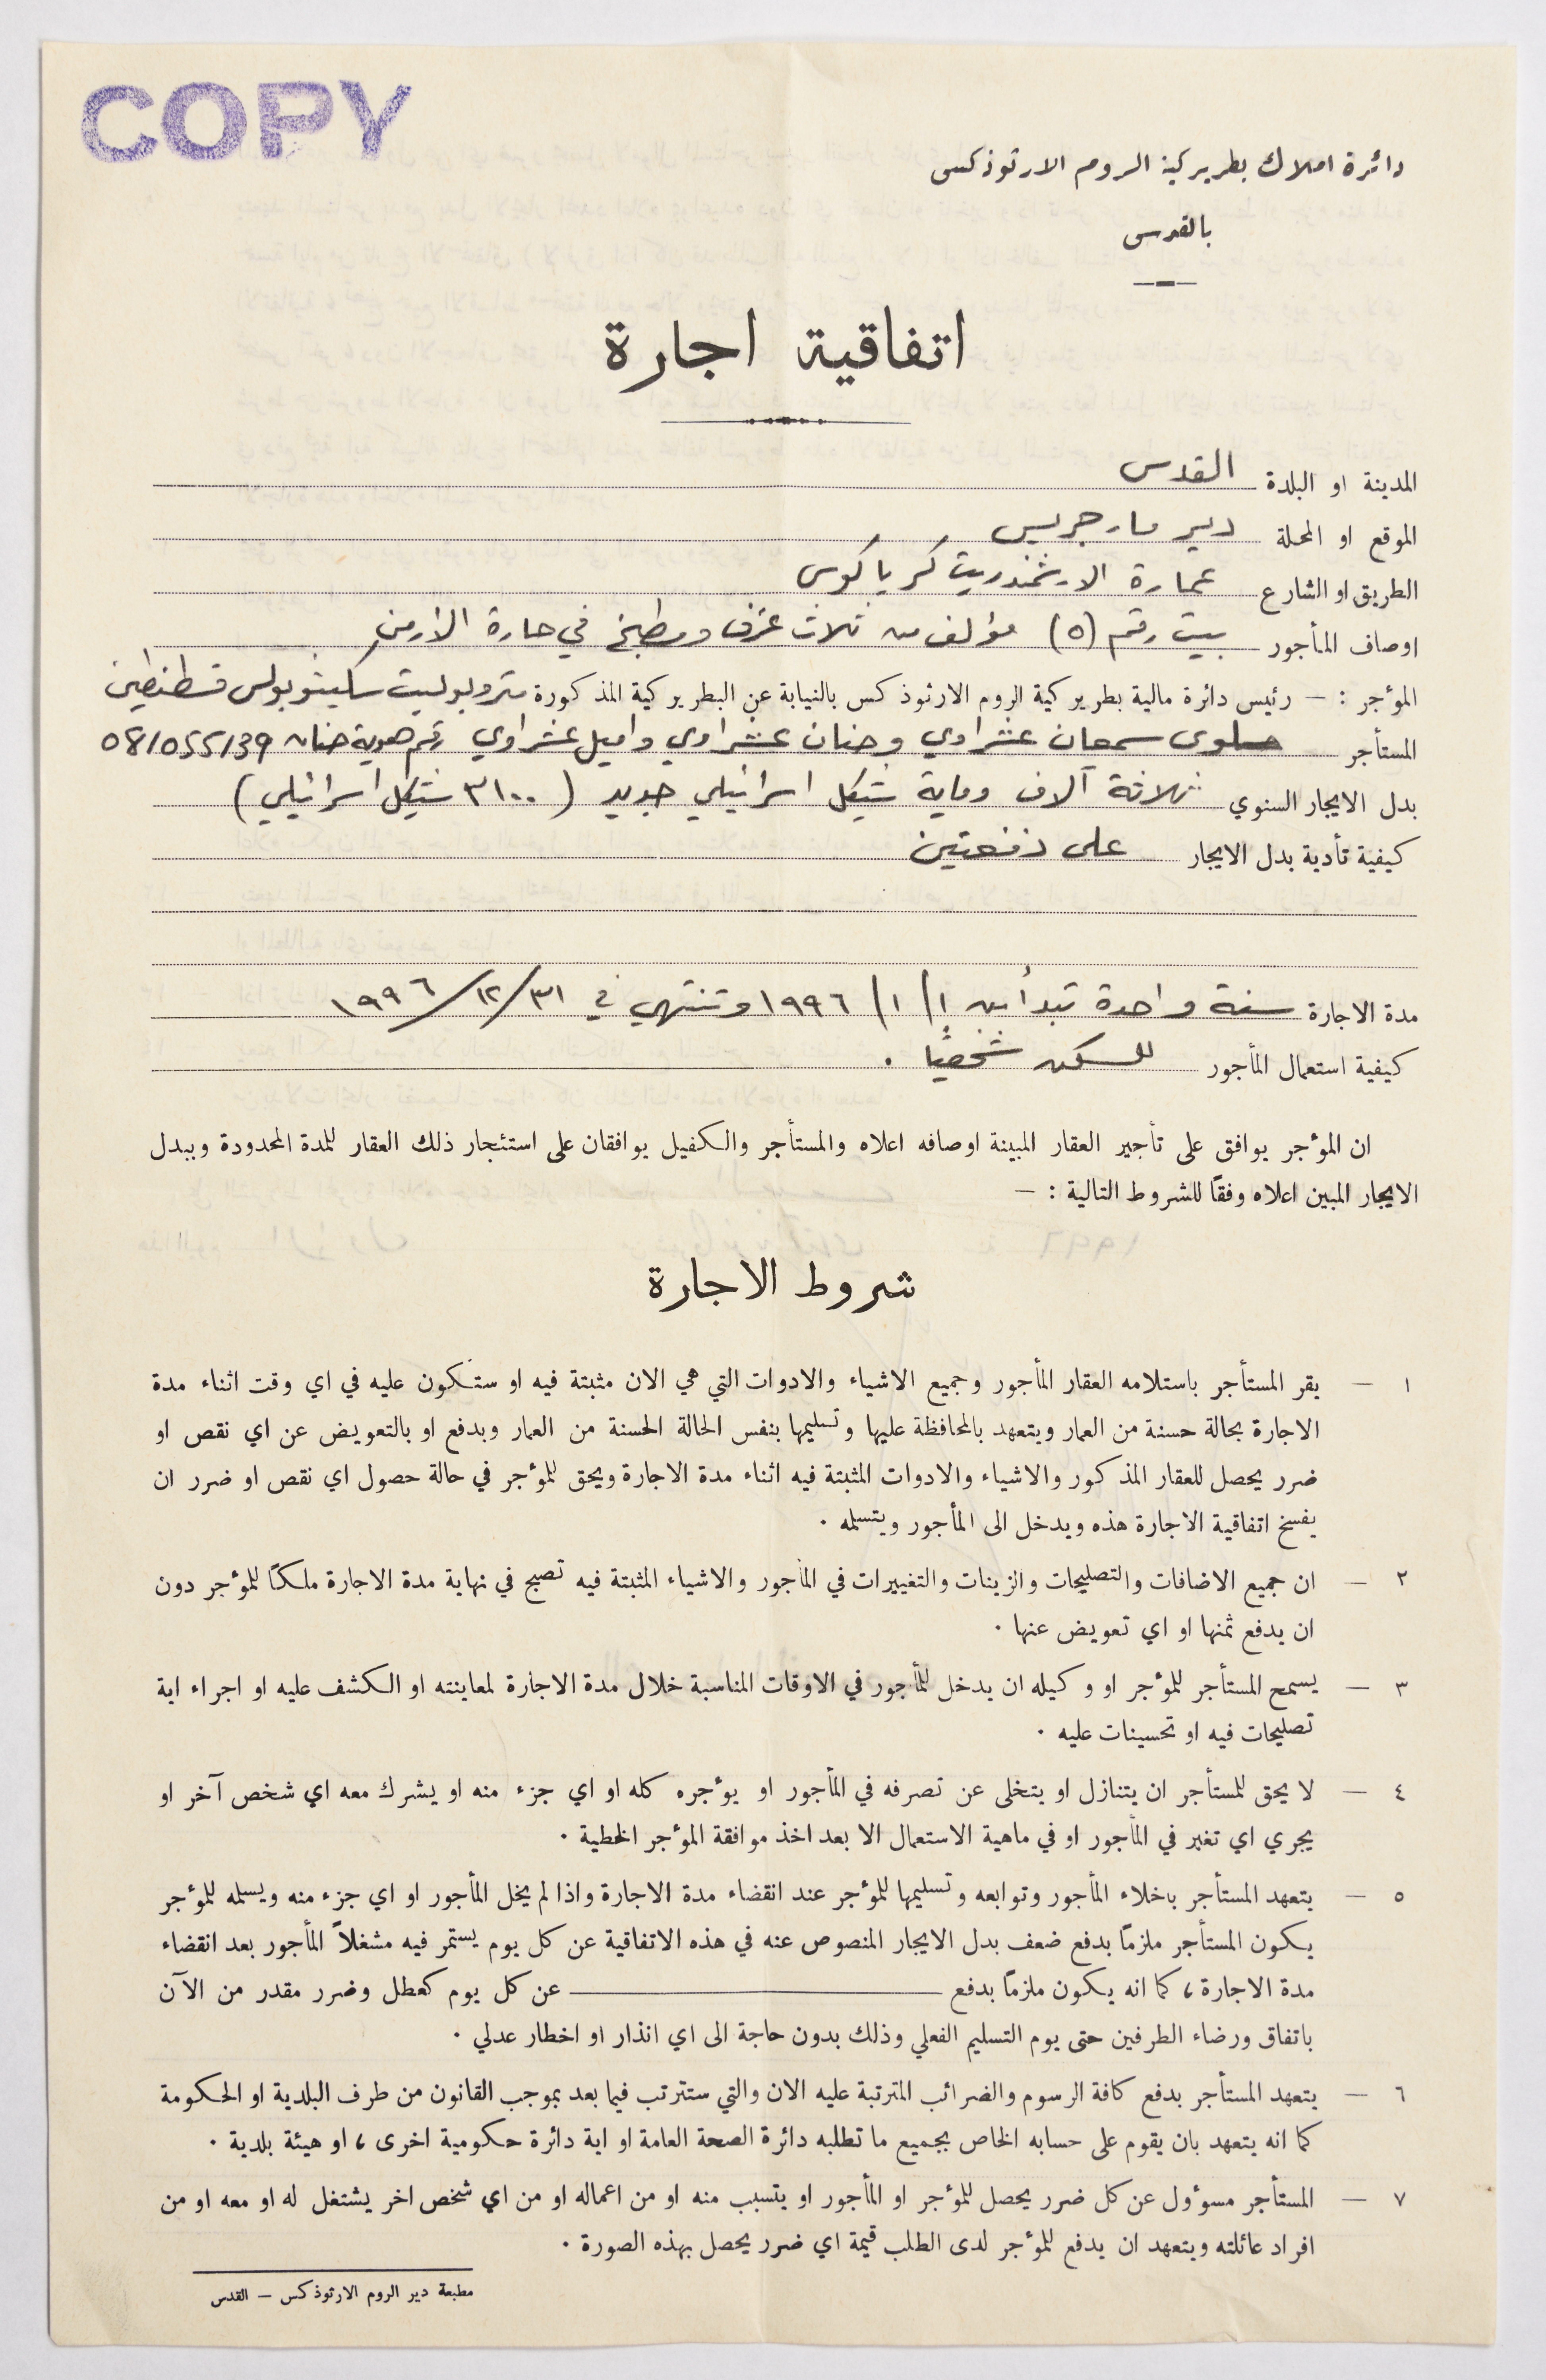 COPY
دائرة املاك بطريركية الروم الارثوذكسى
بالقدسى
اتفاقية اجارة
المدينة او البلدة القدس
الموقع او المحلة دير مار جريس
الطريق او الشارع عمارة الارشمندريت كرياكوس
اوصاف المأجور بيت رقم (٥) مؤلف من ثلاث غرف ومطبخ في حارة الأرمن
المؤجر : — رئيس دائرة مالية بطريركية الروم الارثوذكس بالنيابة عن البطريركية المذكورة متروبوليت سكيتوبولس قسطنطين
المستأجر سلوى سمعان عشراوي وحنان عشراوي واميل عشراوي رقم هوية حنان 08/055139
بدل الايجار السنوي ثلاثة آلاف وماية شيكل اسرائيلي جديد (٣١٠٠ شيكل اسرائيلي)
كيفية تأدية بدل الايجار على دفعتين
مدة الاجارة سنة واحدة تبدأ من ١/١/١٩٩٦ وتنتهي في ٣١/١٢/١٩٩٦
كيفية استعمال المأجور للسكن شخصيًا .
ان المؤجر يوافق على تأجير العقار المبينة اوصافه اعلاه والمستأجر والكفيل يوافقان على استئجار ذلك العقار للمدة المحدودة وببدل
الايجار المبين اعلاه وفقًا للشروط التالية : —
شروط الاجارة
١ — يقر المستأجر باستلامه العقار المأجور وجميع الاشياء والادوات التي هي الان مثبتة فيه او ستكون عليه في اي وقت اثناء مدة
الاجارة بحالة حسنة من العمار ويتعهد بالمحافظة عليها وتسليمها بنفس الحالة الحسنة من العمار وبدفع او بالتعويض عن اي نقص او
ضرر يحصل للعقار المذكور والاشياء والادوات المثبتة فيه اثناء مدة الاجارة ويحق للمؤجر في حالة حصول اي نقص او ضرر ان
يفسخ اتفاقية الاجارة هذه ويدخل الى المأجور ويتسلمه .
٢ — ان جميع الاضافات والتصليحات والزينات والتغييرات في المأجور والاشياء المثبتة فيه تصبح في نهاية مدة الاجارة ملكًا للمؤجر دون
ان يدفع ثمنها او اي تعويض عنها .
٣ — يسمح المستأجر للمؤجر او وكيله ان يدخل للمأجور في الاوقات المناسبة خلال مدة الاجارة لمعاينته او الكشف عليه او اجراء اية
تصليحات فيه او تحسينات عليه .
٤ — لا يحق للمستأجر ان يتنازل او يتخلى عن تصرفه في المأجور او يؤجره كله او اي جزء منه او يشرك معه اي شخص آخر او
يجري اي تغير في المأجور او في ماهية الاستعمال الا بعد اخذ موافقة المؤجر الخطية .
٥ — يتعهد المستأجر باخلاء المأجور وتوابعه وتسليمها للمؤجر عند انقضاء مدة الاجارة واذا لم يخل المأجور او اي جزء منه ويسلمه للمؤجر
يكون المستأجر ملزمًا بدفع ضعف بدل الايجار المنصوص عنه في هذه الاتفاقية عن كل يوم يستمر فيه مشغلاً المأجور بعد انقضاء
مدة الاجارة ، كما انه يكون ملزمًا بدفع ــــــــــ عن كل يوم كعطل وضرر مقدر من الآن
باتفاق ورضاء الطرفين حتى يوم التسليم الفعلي وذلك بدون حاجة الى اي انذار او اخطار عدلي .
٦ — يتعهد المستأجر بدفع كافة الرسوم والضرائب المترتبة عليه الان والتي ستترتب فيما بعد بموجب القانون من طرف البلدية او الحكومة
كما انه يتعهد بان يقوم على حسابه الخاص بجميع ما تطلبه دائرة الصحة العامة او اية دائرة حكومية اخرى ، او هيئة بلدية .
٧ — المستأجر مسوؤل عن كل ضرر يحصل للمؤجر او المأجور او يتسبب منه او من اعماله او من اي شخص اخر يشتغل له او معه او من
افراد عائلته ويتعهد ان يدفع للمؤجر لدى الطلب قيمة اي ضرر يحصل بهذه الصورة .
مطبعة دير الروم الارثوذكس — القدس